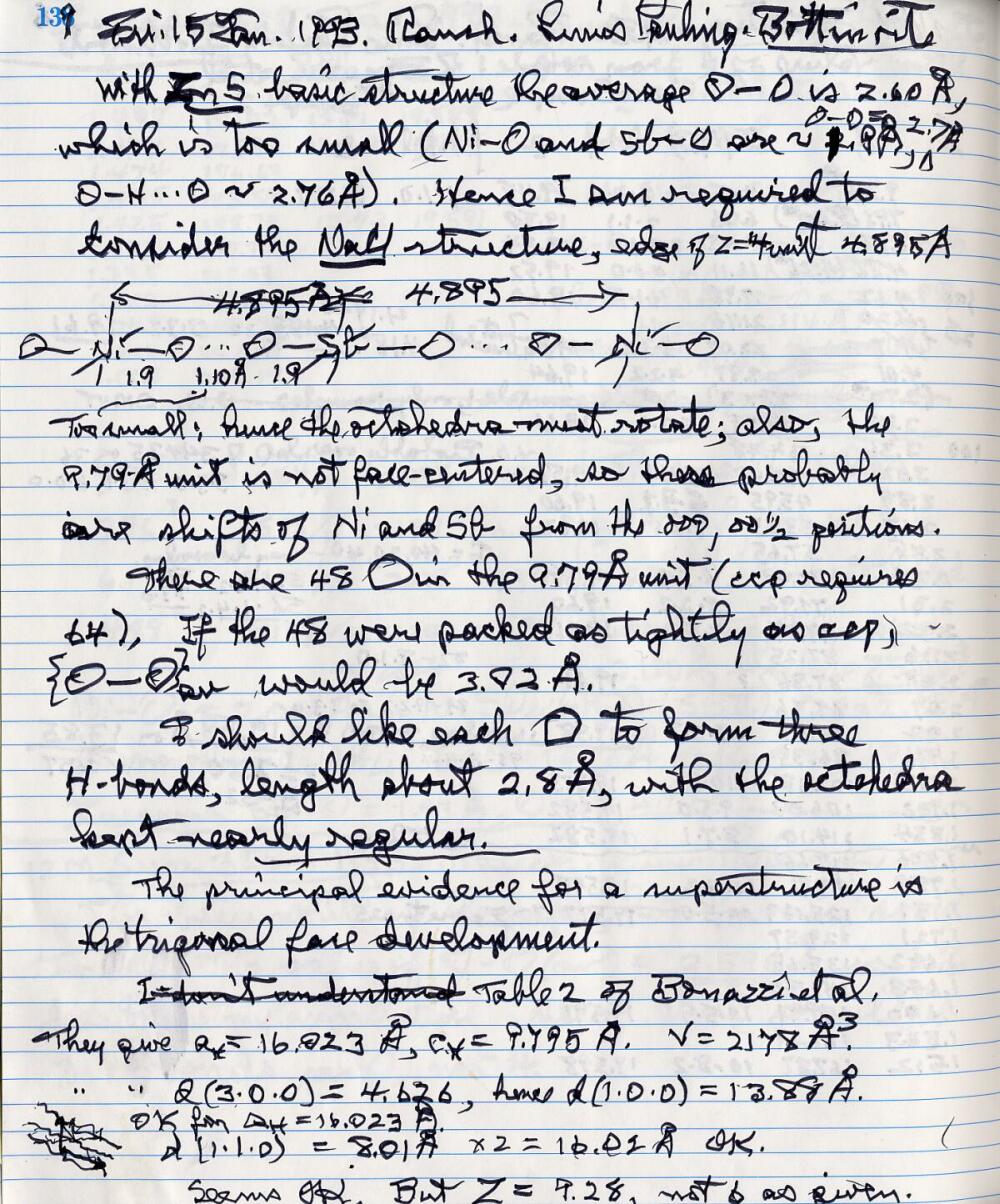 139 Fri. 15 Jan. 1993. Ranch. Linus Pauling. Bottinoite
with ZnS basic structure the average O–O is 2.60 Å,
which is too small (Ni–O and Sb–O are ~ 1.9Å, O–O = 2.7Å
O–H···O ~ 2.76Å). Hence I am required to
consider the NaCl structure, edge of Z=4 unit 4.895Å
4.895 Å 4.895
O – Ni – O ··· O – Sb – O ··· O – Ni – O
1.9 1.10Å 1.9
Too small; hence the octahedra must rotate; also, the
9.79-Å unit is not face-centered, so there probably
are shifts of Ni and Sb from the 000, 00½ positions.
There are 48 O in the 9.79Å unit (ccp requires
64). If the 48 were packed as tightly as ccp,
{O–O}av would be 3.82 Å.
I should like each O to form three
H-bonds, length about 2.8Å, with the octahedra
kept nearly regular.
The principal evidence for a superstructure is
the trigonal face development.
I don't understand Table 2 of Bonazzi et al.
They give aH = 16.023 Å, cH = 9.795 Å. V = 2178 Å³.
" " d(3·0·0) = 4.626, hence d(1·0·0) = 13.88 Å.
OK for aH = 16.023 Å.
d(1·1·0) = 8.01Å ×2 = 16.02 Å OK.
Seems OK. But Z = 9.28, not 6 as given.